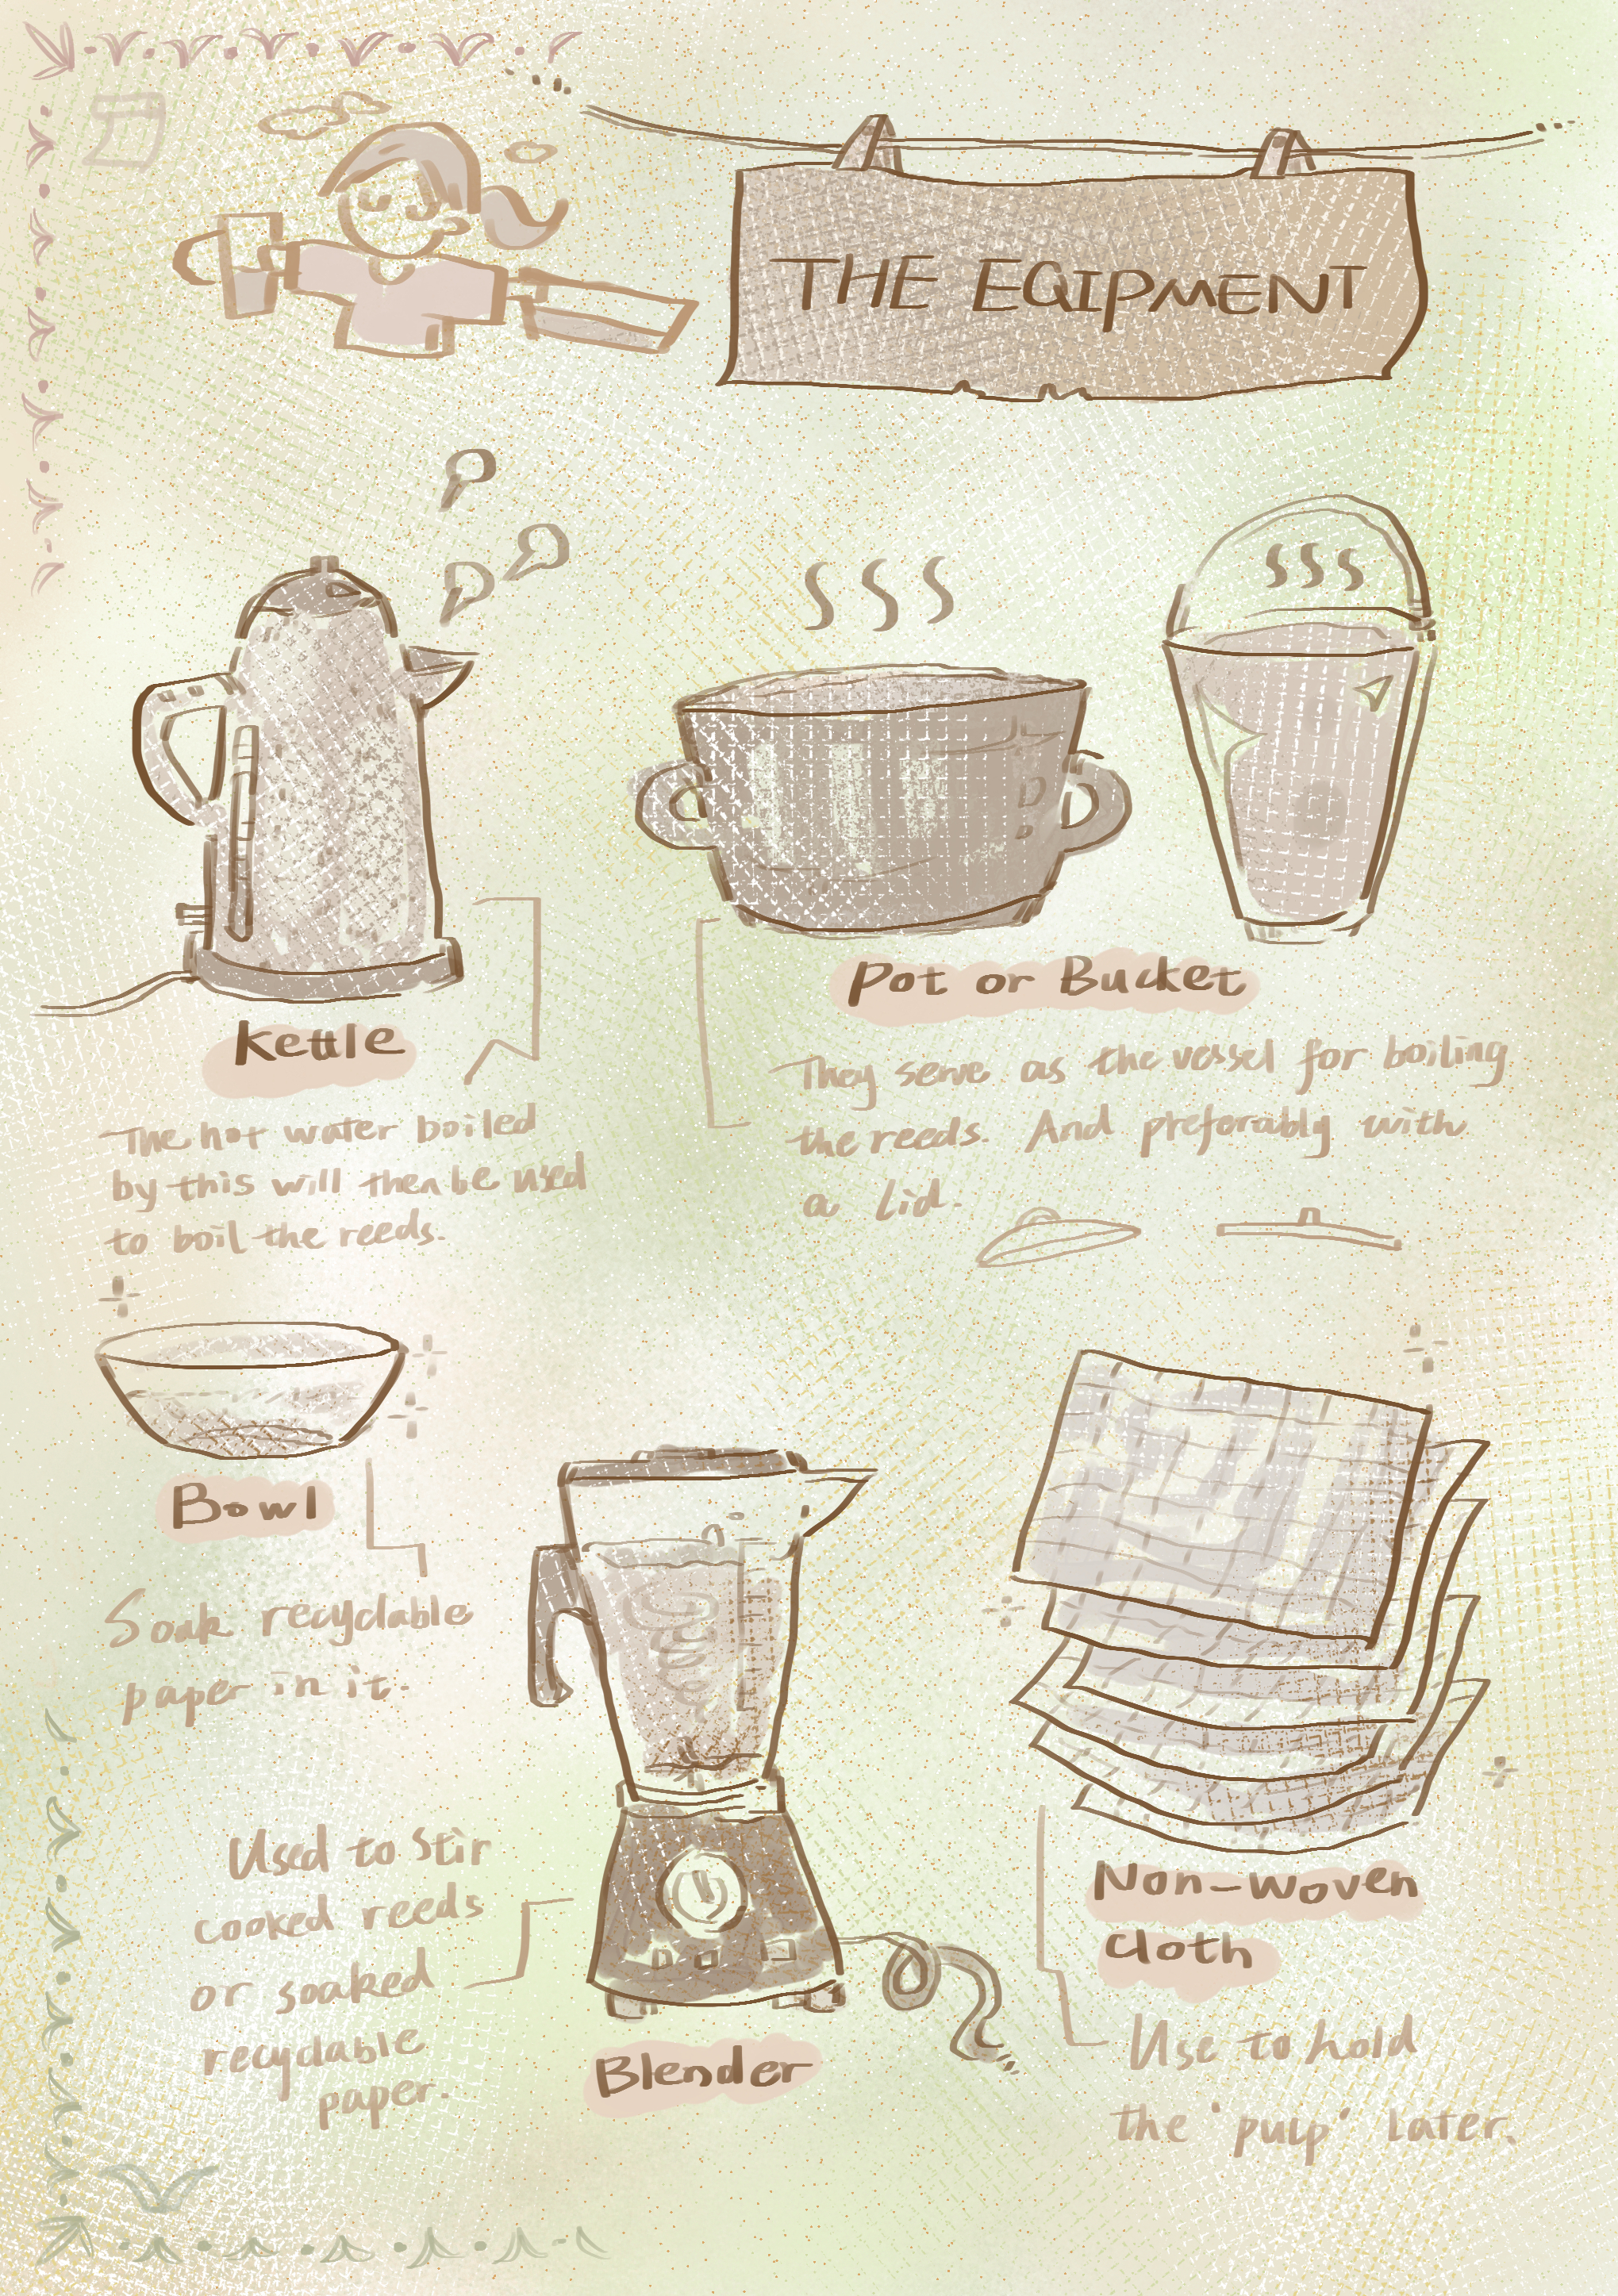 THE EQIPMENT
Kettle
The hot water boiled
by this will then be used
to boil the reeds.
Pot or Bucket
They serve as the vessel for boiling
the reeds. And preforably with
a lid.
Bowl
Soak recyclable
paper in it.
Used to stir
cooked reeds
or soaked
recyclable
paper.
Blender
Non-woven
cloth
Use to hold
the 'pulp' later.